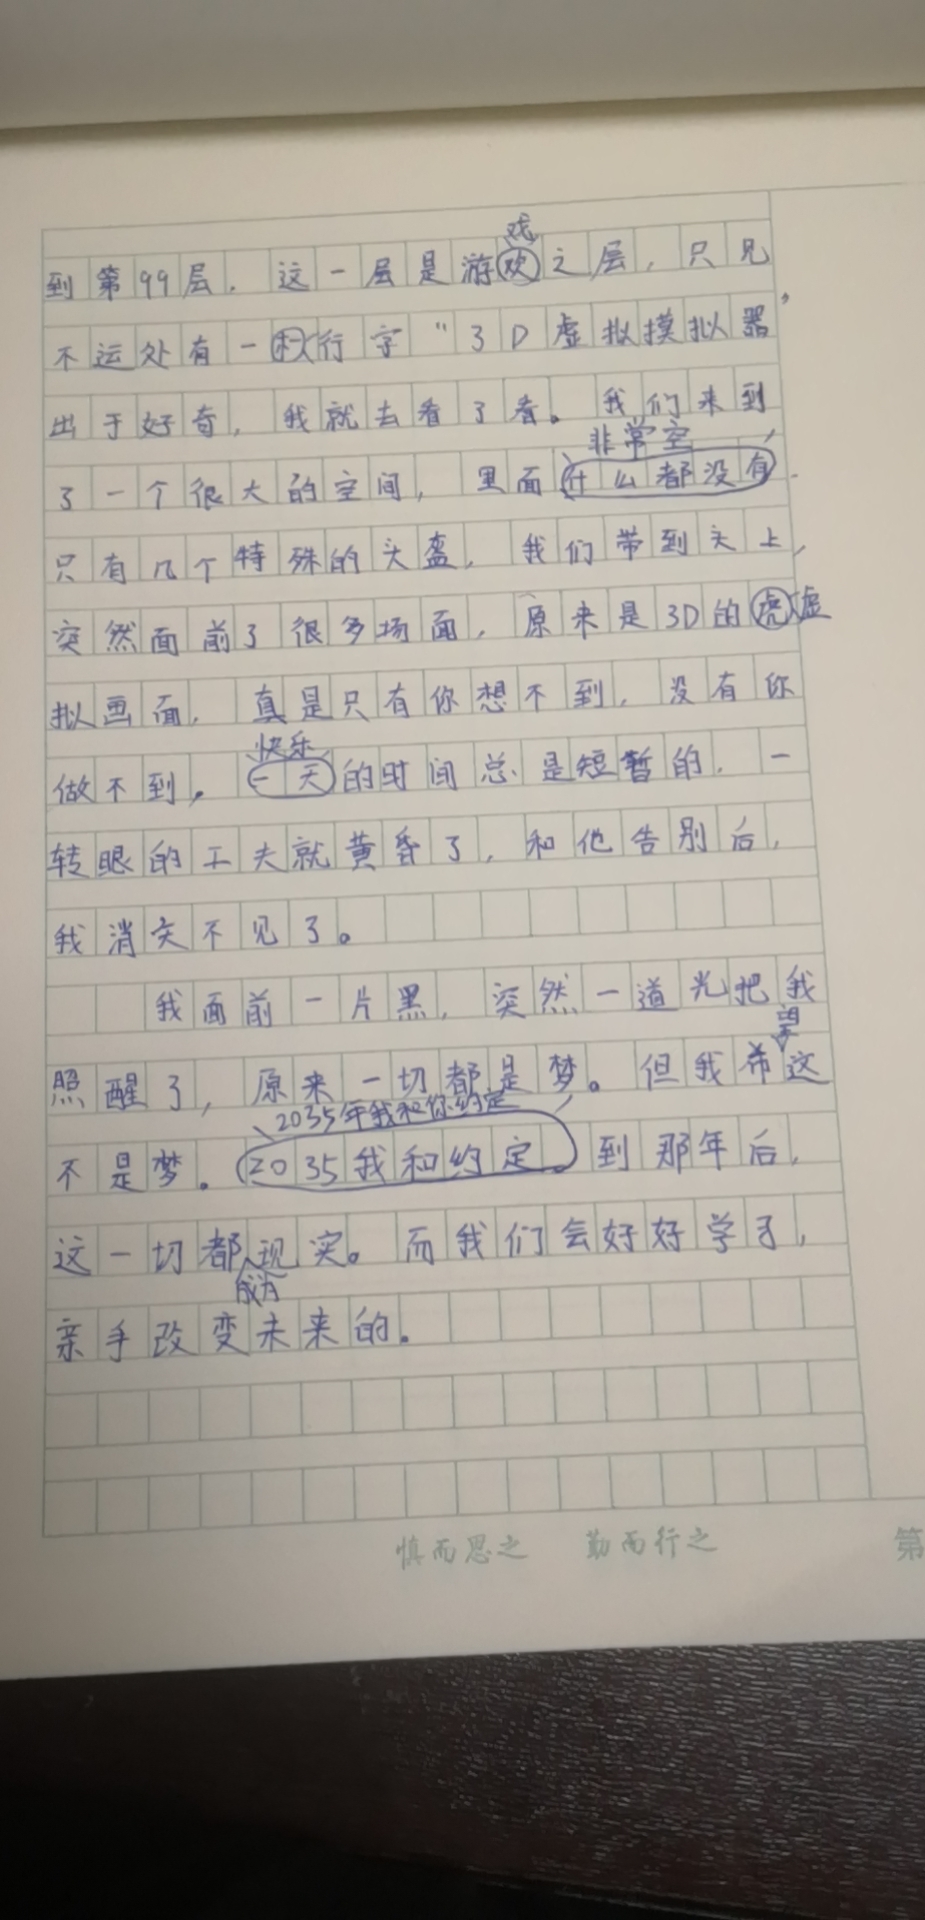 戏
到第99层，这一层是游欢之层，只见
不运处有一权行字“3D虚拟摸拟器”
出于好奇，我就去看了看。我们来到
非常空
了一个很大的空间，里面什么都没有．
只有几个特殊的头盔，我们带到头上，
突然面前了很多场面，原来是3D的虎虚
拟画面，真是只有你想不到，没有你
快乐
做不到。一天的时间总是短暂的．一
转眼的工夫就黄昏了，和他告别后，
我消失不见了。
我面前一片黑，突然一道光把我
望
照醒了，原来一切都是梦。但我希这
2035年我和你约定
不是梦。2035我和约定。到那年后，
这一切都现实。而我们会好好学习，
成为
亲手改变未来的。
慎而思之 勤而行之 第